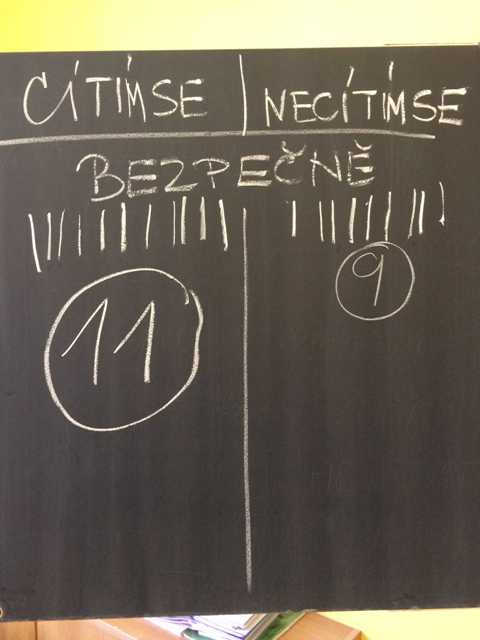 CÍTÍM SE NECÍTÍM SE
BEZPEČNĚ
11 9